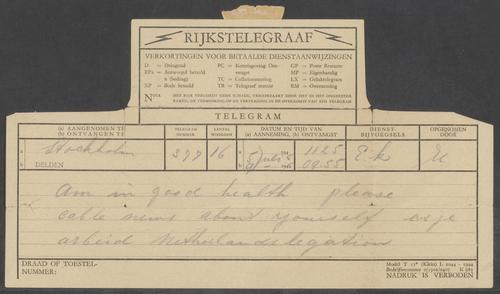 RIJKSTELEGRAAF
VERKORTINGEN VOOR BETAALDE DIENSTAANWIJZINGEN
D = Dringend
RPx = Antwoord betaald
x (bedrag)
XP = Bode betaald
PC = Kennisgeving Ont-
vangst
TC = Collationneering
TR = Telegraaf restant
GP = Poste Restante
MP = Eigenhandig
LX = Geluktelegram
RM = Overseining
TELEGRAM
(a) AANGENOMEN TE
(b) ONTVANGEN TE
TELEGRAM
NUMMER
AANTAL
WOORDEN
DATUM EN TIJD VAN
(a) AANNEMING, (b) ONTVANGST
DIENST-
BIJVOEGSELS
OPGENOMEN
DOOR
a Stockholm 377 16 a 5 Juli 1125 E.k
b DELDEN b 0955
Am in good health please
cable news about yourself
arbeid Netherlandslegation
DRAAD OF TOESTEL-
NUMMER:
Model T 11a (Klein) L 2044 - 1944
K 983
NADRUK IS VERBODEN